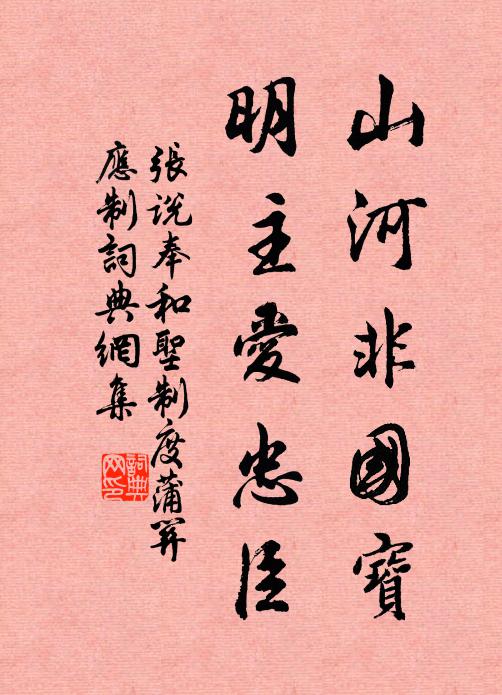 山河非國寶
明主愛忠臣
張説奉和聖制度蒲關
應制詞典網集
詞典
网印